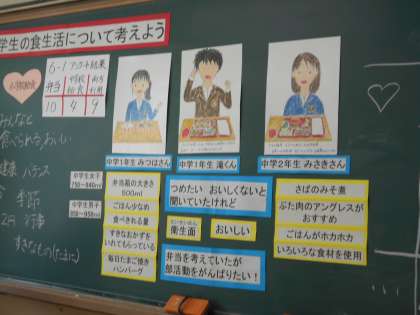 学生の食生活について考えよう
6-1 アンケート結果
弁当
10
4
9
みんなと
食べられる,おいしい
健康 バランス
季節
行事
すきなもの(たまに)
中学生女子
中学生男子
中学1年生 みつはさん
弁当箱の大きさ
500ml
ごはん少なめ
食べきれる量
すきなおかずを
いれてもらっている
毎日たまご焼き
ハンバーグ
中学1年生 滝くん
つめたい おいしくないと
聞いていたけれど
衛生面
おいしい
弁当を考えていたが
部活動をがんばりたい!
中学2年生 みさきさん
さばのみそ煮
ぶた肉のアングレスが
おすすめ
ごはんがホカホカ
いろいろな食材を使用